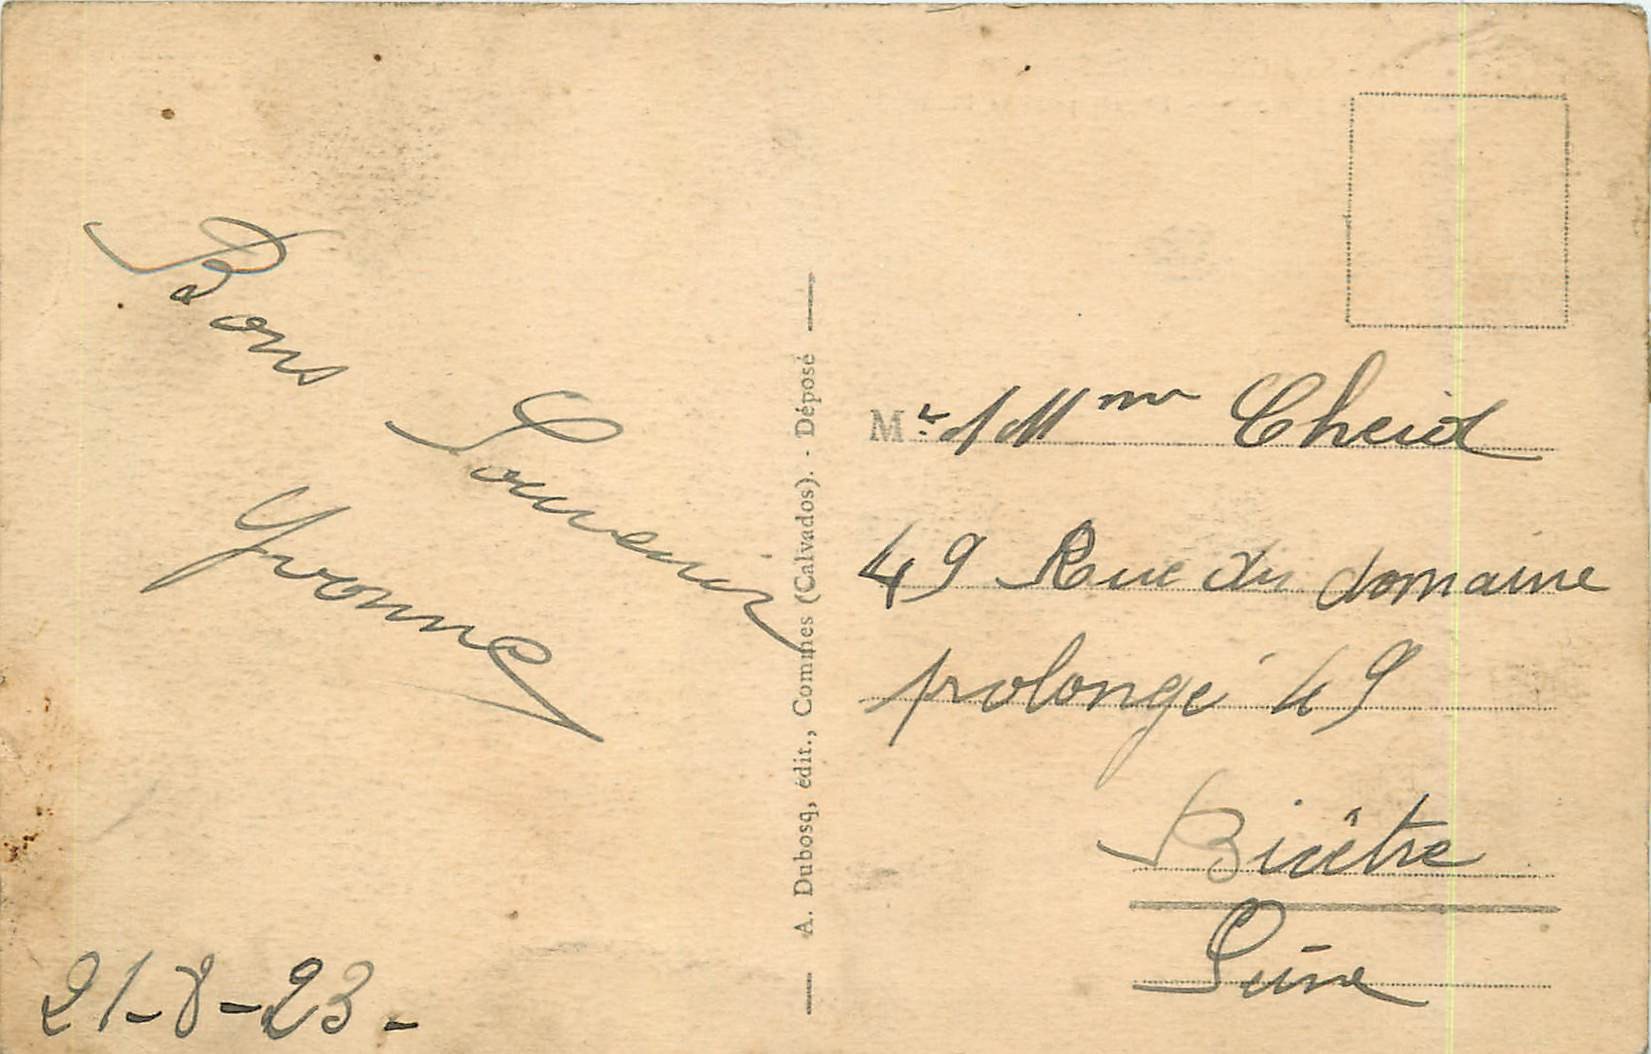 Bons
Souvenir
Yvonne
21-8-23-
A. Dubosq, édit., Commes (Calvados). - Déposé
Mr Mme Cheid
49 Rue du domaine
prolongé 49
Bicêtre
Seine